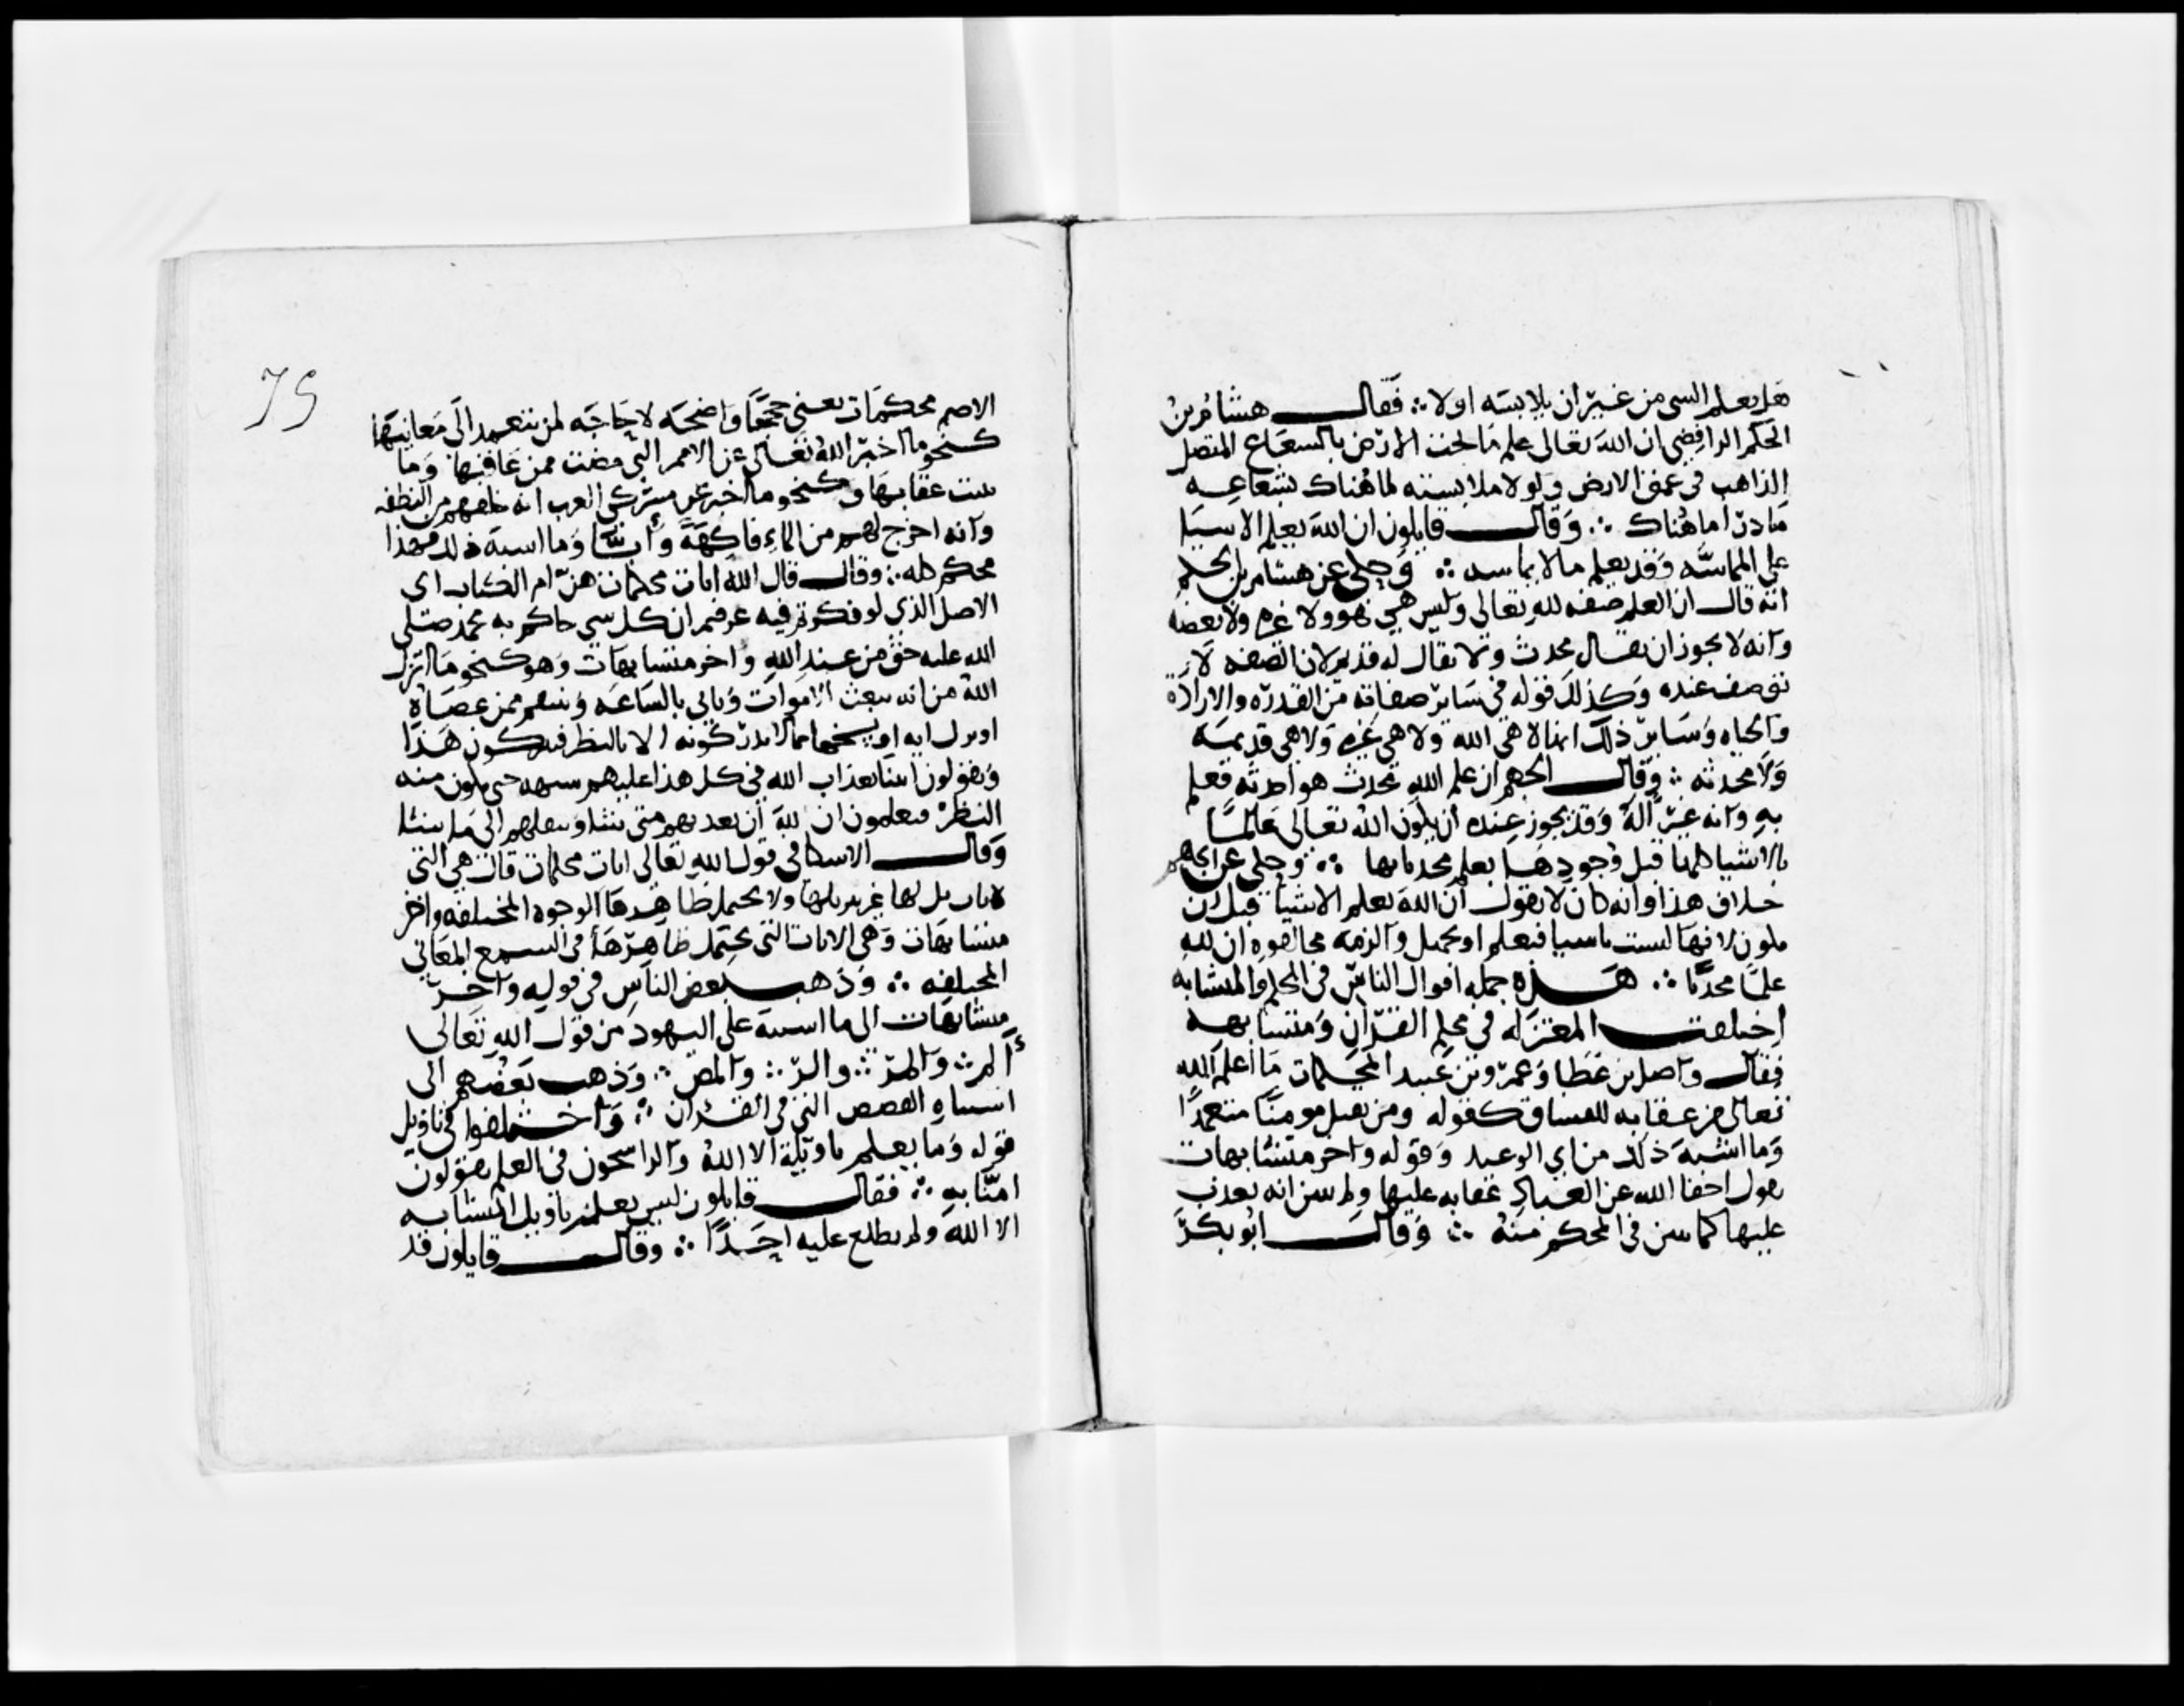 هل يعلم السى من غير ان يلابسه اولا ؞ فقال هشام بن
الحكم الرافضي ان الله تعالى علم ما تحت الارض بالشعاع المتصل
الذاهب في عمق الارض ولولا ملابسته لما هناك بشعاعه
ما درا ما هناك ؞ وقال قايلون ان الله يعلم الاشيا
على المماسّه وقد يعلم ما لا يماسه ؞ وحكي عن هشام بن الحكم
انه قال ان العلم صفه لله تعالى وليس هي هو ولا غيره ولا بعضه
وانه لا يجوز ان يقال محدث ولا يقال له قديم لان الصفه لا
توصف عنده وكذلك قوله في ساير صفاته من القدره والاراده
والحياه وساير ذلك انها لا هي الله ولا هي غيره ولا هي قديمه
ولا محدثه ؞ وقال الجهم ان علم الله محدث هو احدثه فعلم
به وانه غير الله وقد يجوز عنده ان يكون الله تعالى عالمًا
بالاشيا كلها قبل وجودها بعلم محدث بها ؞ وحكي عن الجهم
خلاف هذا وانه كان لا يقول ان الله يعلم الاشيا قبل ان
يكون لانها ليست باشيا فتعلم او تجهل والزمه مخالفوه ان لله
علمًا محدثا ؞ هذه جمله اقوال الناس في المحكم والمتشابه
اختلفت المعتزله في محكم القران ومتشابهه
فقال واصل بن عطا وعمرو بن عبيد المحكمات ما اعلم الله
تعالى من عقابه للفساق كقوله ومن يقتل مومنًا متعمدًا
وما اشبه ذلك من اي الوعيد وقوله واخر متشابهات
يقول اخفا الله عن العباد عقابه عليها ولم يبين انه يعذب
عليها كما بين في المحكم منه ؞ وقال ابو بكر
75
الاصم محكمات يعني حججًا واضحه لا حاجه لمن يتعمد الى معانيها
كنحو ما اخبر الله تعالى عن الامم التي مضت ممن عاقبها وما
يثبت عقابها وكنحو ما اخبر عن مشركي العرب انه خلقهم من النطفه
وانه اخرج لهم من الماء فاكهةً وأبًّا وما اشبه ذلك فهذا
محكم كله ؞ وقال قال الله ايات محكمات هنّ ام الكتاب اى
الاصل الذي لو فكرتم فيه عرفتم ان كل شي جاكم به محمد صلى
الله عليه حق من عند الله واخر متشابهات وهو كنحو ما انزل
الله من انه يبعث الاموات وياتي بالساعه وينتقم ممن عصاه
او ترك ايه او نسخها مما لا يدركونه الا بالنظر فيتركون هذا
ويقولون ايتنا بعذاب الله في كل هذا عليهم شبهه حتى يكون منه
النظر فيعلمون ان لله ان يعذبهم متى يشا وينقلهم الى ما يشا
وقال الاسكافي قول الله تعالى ايات محكمات قال هي التي
لا تاويل لها غير تنزيلها ولا يحتمل ظاهرها الوجوه المختلفه واخر
متشابهات وهي الايات التي يحتمل ظاهرها في السمع المعاني
المختلفه ؞ وذهب بعض الناس في قوله واخر
متشابهات الى ما اشتبه على اليهود من قول الله تعالى
ألم ؞ والمر ؞ والر ؞ والمص ؞ وذهب بعضهم الى
اشتباه القصص التي في القران ؞ واختلفوا في تاويل
قوله وما يعلم تاويله الا الله والراسخون في العلم يقولون
امنّا به ؞ فقال قايلون ليس يعلم تاويل المتشابه
الا الله ولم يطلع عليه احدًا ؞ وقال قايلون قد